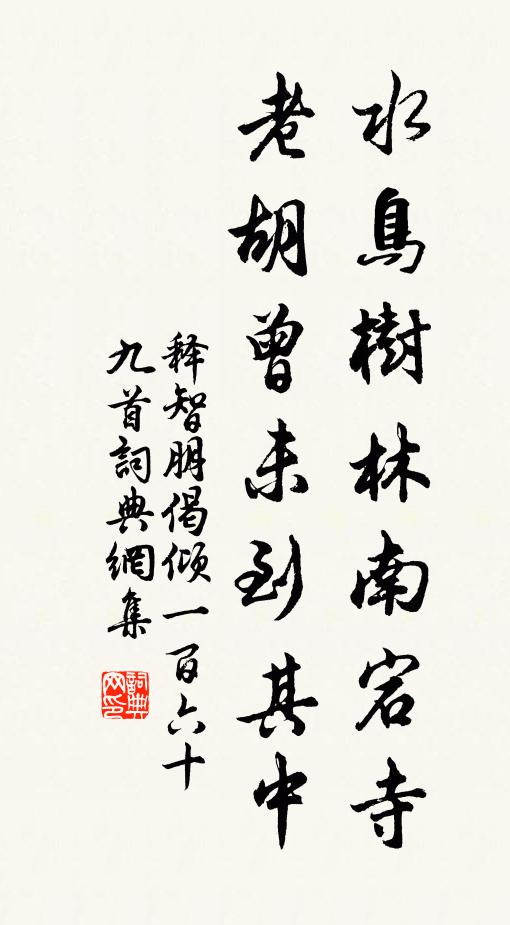 水鳥樹林南宕寺
老胡曾未到其中
释智朋偈倾一百六十
九首詞典網集
詞典网印